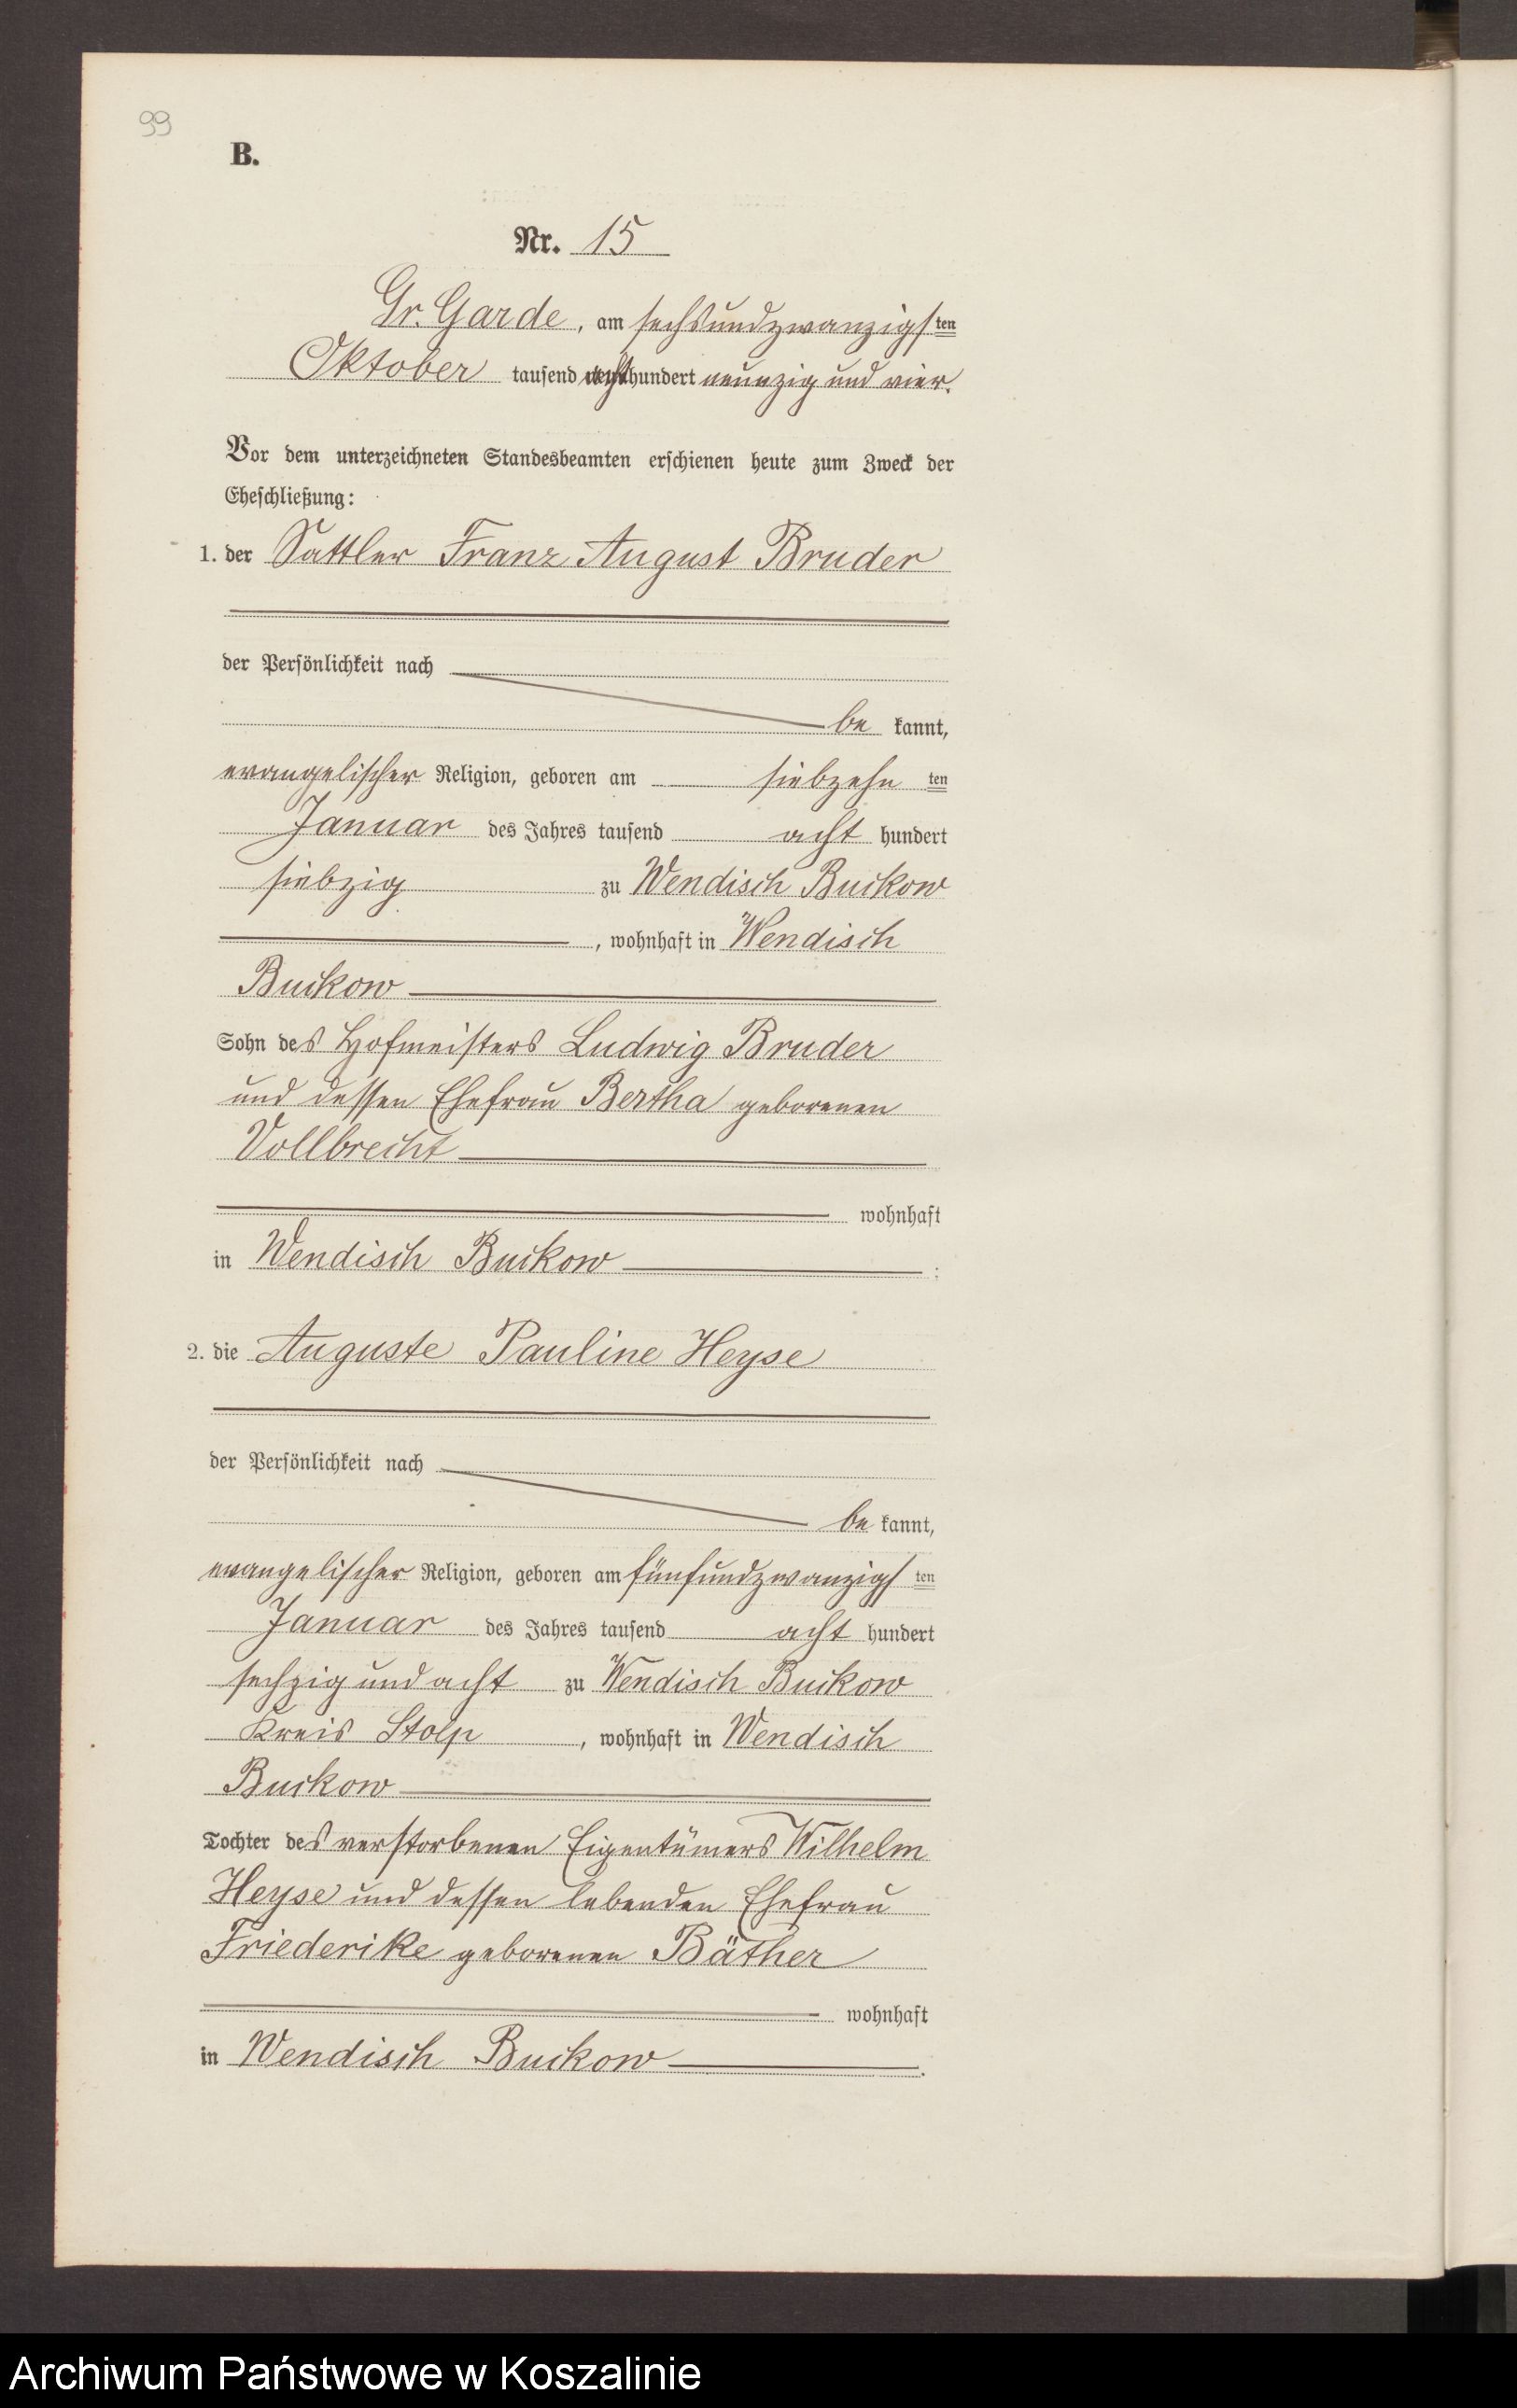 99
B.
Nr. 15
Gr. Garde, am sechsundzwanzigsten
Oktober tausend achthundert neunzig und vier.
Vor dem unterzeichneten Standesbeamten erschienen heute zum Zweck der
Eheschließung:
1. der Sattler Franz August Bruder
der Persönlichkeit nach
be kannt,
evangelischer Religion, geboren am siebzehn ten
Januar des Jahres tausend acht hundert
siebzig zu Wendisch Buckow
, wohnhaft in Wendisch
Buckow
Sohn des Hofmeisters Ludwig Bruder
und dessen Ehefrau Bertha geborenen
Vollbrecht
wohnhaft
in Wendisch Buckow ;
2. die Auguste Pauline Heyse
der Persönlichkeit nach
be kannt,
evangelischer Religion, geboren am fünfundzwanzigsten
Januar des Jahres tausend acht hundert
sechzig und acht zu Wendisch Buckow
Kreis Stolp, wohnhaft in Wendisch
Buckow
Tochter des verstorbenen Eigentümers Wilhelm
Heyse und dessen lebenden Ehefrau
Friederike geborenen Bäther
wohnhaft
in Wendisch Buckow .
Archiwum Państwowe w Koszalinie